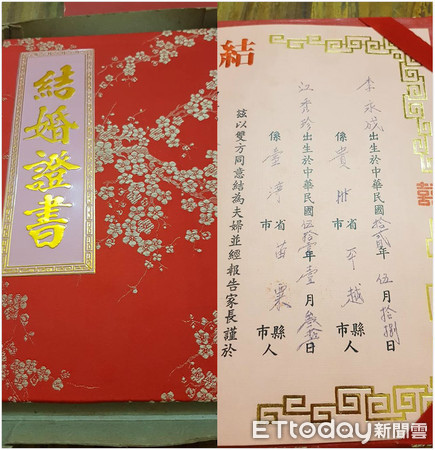 結婚證書
結
李永成出生於中華民國拾貳年伍月拾捌日
係貴州省平越縣
市 市人
江秀珍出生於中華民國伍拾壹年壹月叁拾日
係臺灣省苗栗縣
市 市人
茲以雙方同意結為夫婦並經報告家長謹於
囍
ETtoday新聞雲